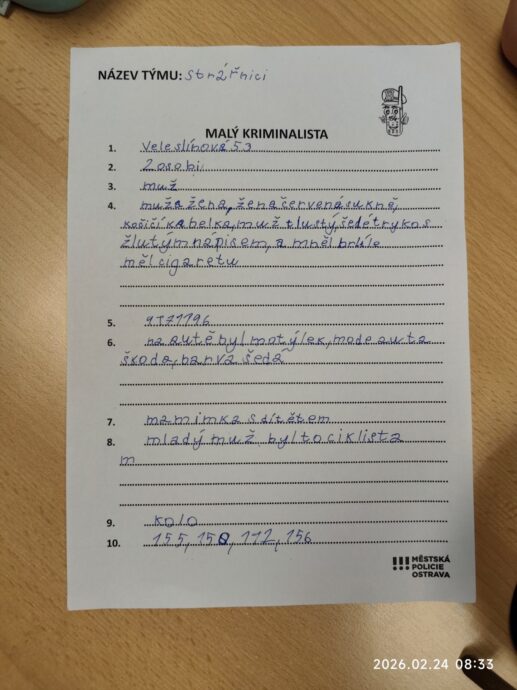 NÁZEV TÝMU: strářnici
MALÝ KRIMINALISTA
1. Veleslínová 53
2. 2 osobi
3. muž
4. muž a žena, žena červená sukně,
kočičí kabelka, muž tlustý, šedé tryko s
žlutým nápisem, a mněl brile
měl cigaretu
5. 9T71796
6. na autě byl motýlek, mode auta
škoda, barva šedá
7. maminka s dítětem
8. mladý muž byl to ciklista
m
9. kolo
10. 155, 150, 112, 156
!!! MĚSTSKÁ
POLICIE
OSTRAVA
2026.02.24 08:33